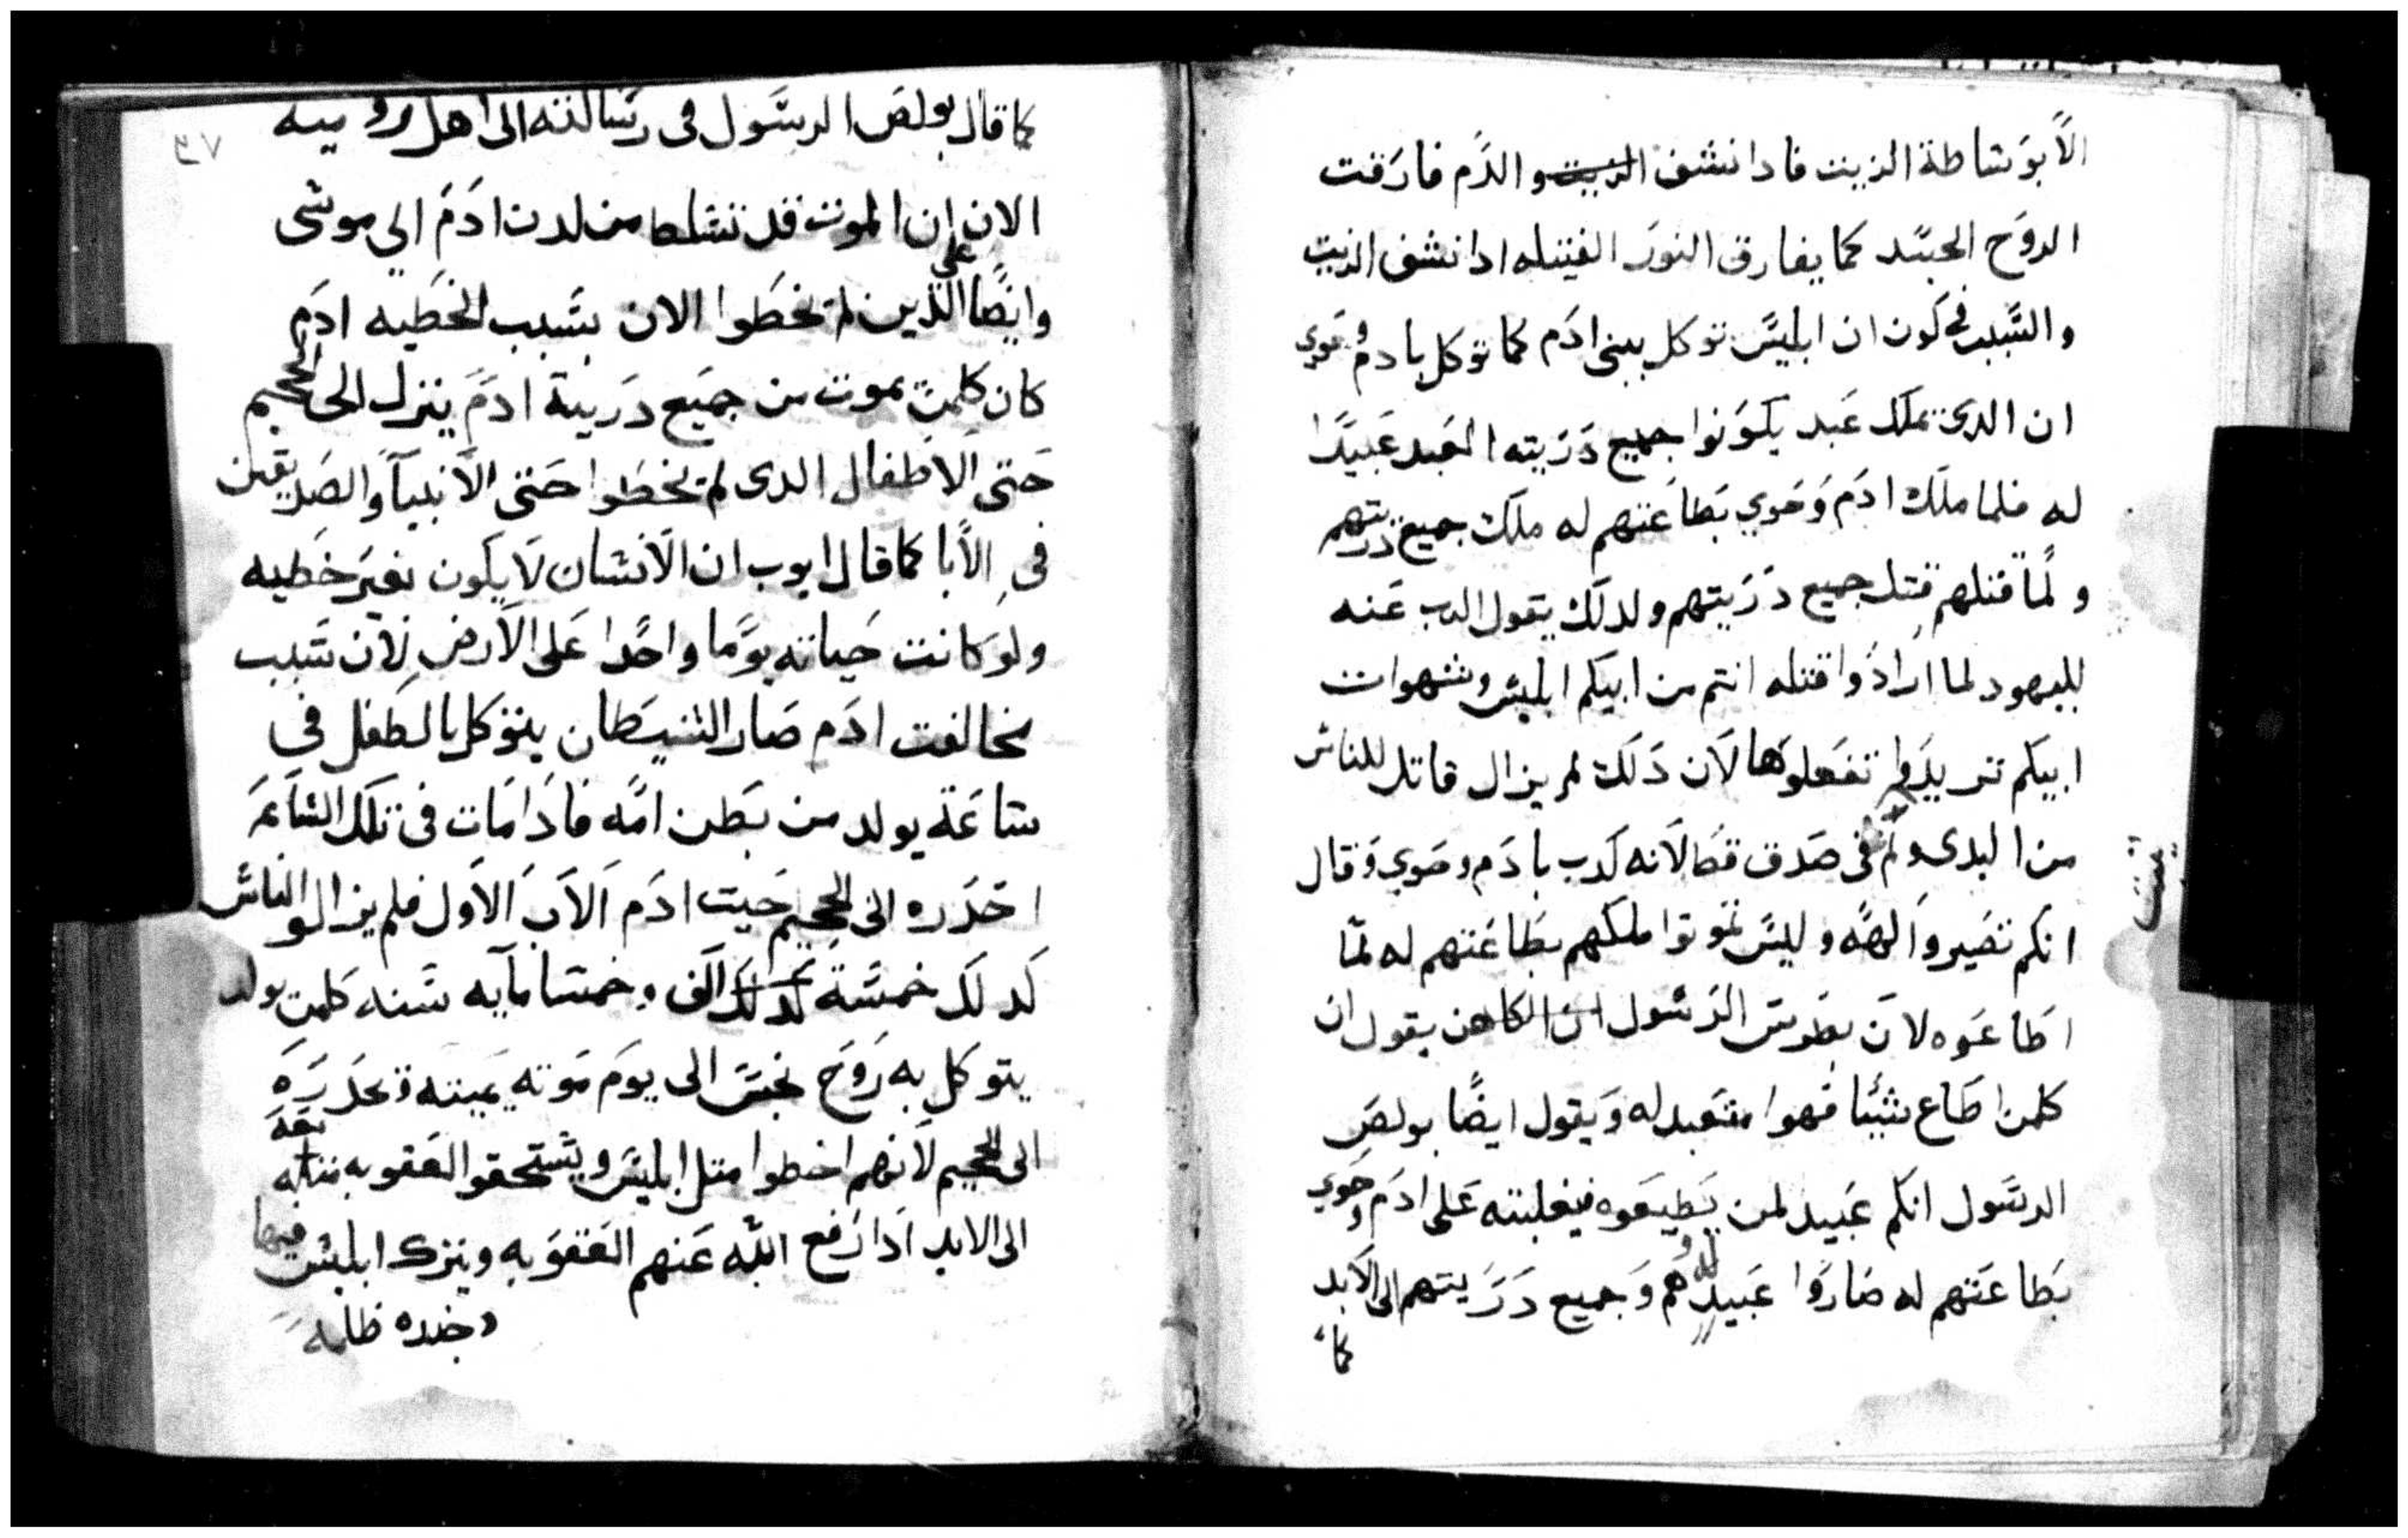 الا بوساطة الزيت فادا نشف الزيت والدم فارقت
الروح الجسد كما يفارق النور الفتيله ادا نشف الزيت
والسبب في كون ان ابليس توكل ببني ادم كما توكل بادم وحوي
ان الدي يملك عبد يكونوا جميع دريته العبد عبيدا
له فلما ملك ادم وحوي بطاعتهم له ملك جميع دريتهم
ولما قتلهم قتل جميع دريتهم ولدلك يقول الرب عنه
لليهود لما ارادوا قتله انتم من ابيكم ابليس وشهوات
ابيكم تريدوا تفعلوها لان دلك لم يزال قاتل للناس
من البدي ولم في صدق قط لانه كدب بادم وحوي وقال
يثبت
انكم تصيروا الهه وليس تموتوا ملكهم بطاعتهم له لما
اطاعوه لان بطرس الرسول ان الكاهن يقول ان
كلمن اطاع شيئا فهوا متعبد له ويقول ايضا بولص
الرسول انكم عبيد لمن يطيعوه فيغلبته على ادم وحوي
بطاعتهم له صاروا عبيد له هم وجميع دريتهم الى الابد
كما
٣٧
كما قال بولص الرسول في رسالته الى اهل روميه
الان ان الموت قد تسلط من لدن ادم الي موسى
وايضا على الدين لم يخطوا الان بسبب الخطيه ادم
كان كلمن يموت من جميع درية ادم ينزل الى الجحيم
حتى الاطفال الدى لم يخطوا حتى الانبيآ والصديقين
في الابا كما قال ايوب ان الانسان لا يكون بغير خطيه
ولو كانت حياته يوما واحدا على الارض لان سبب
مخالفت ادم صار الشيطان يتوكل بالطفل في
ساعة يولد من بطن امه فادا مات في تلك الساعه
احدره الى الجحيم حيت ادم الاب الاول فلم يزالوا الناس
كدلك خمسة كدلك الف وخمسمايه سنه كلمن يولد
يتوكل به روح نجس الى يوم موته يميته ويحدره
الى الجحيم لانهم اخطوا متل ابليس ويستحقو العقوبه متله
الى الابد ادا رفع الله عنهم العقوبه ويترك ابليس فيها
وجنده ظلمه